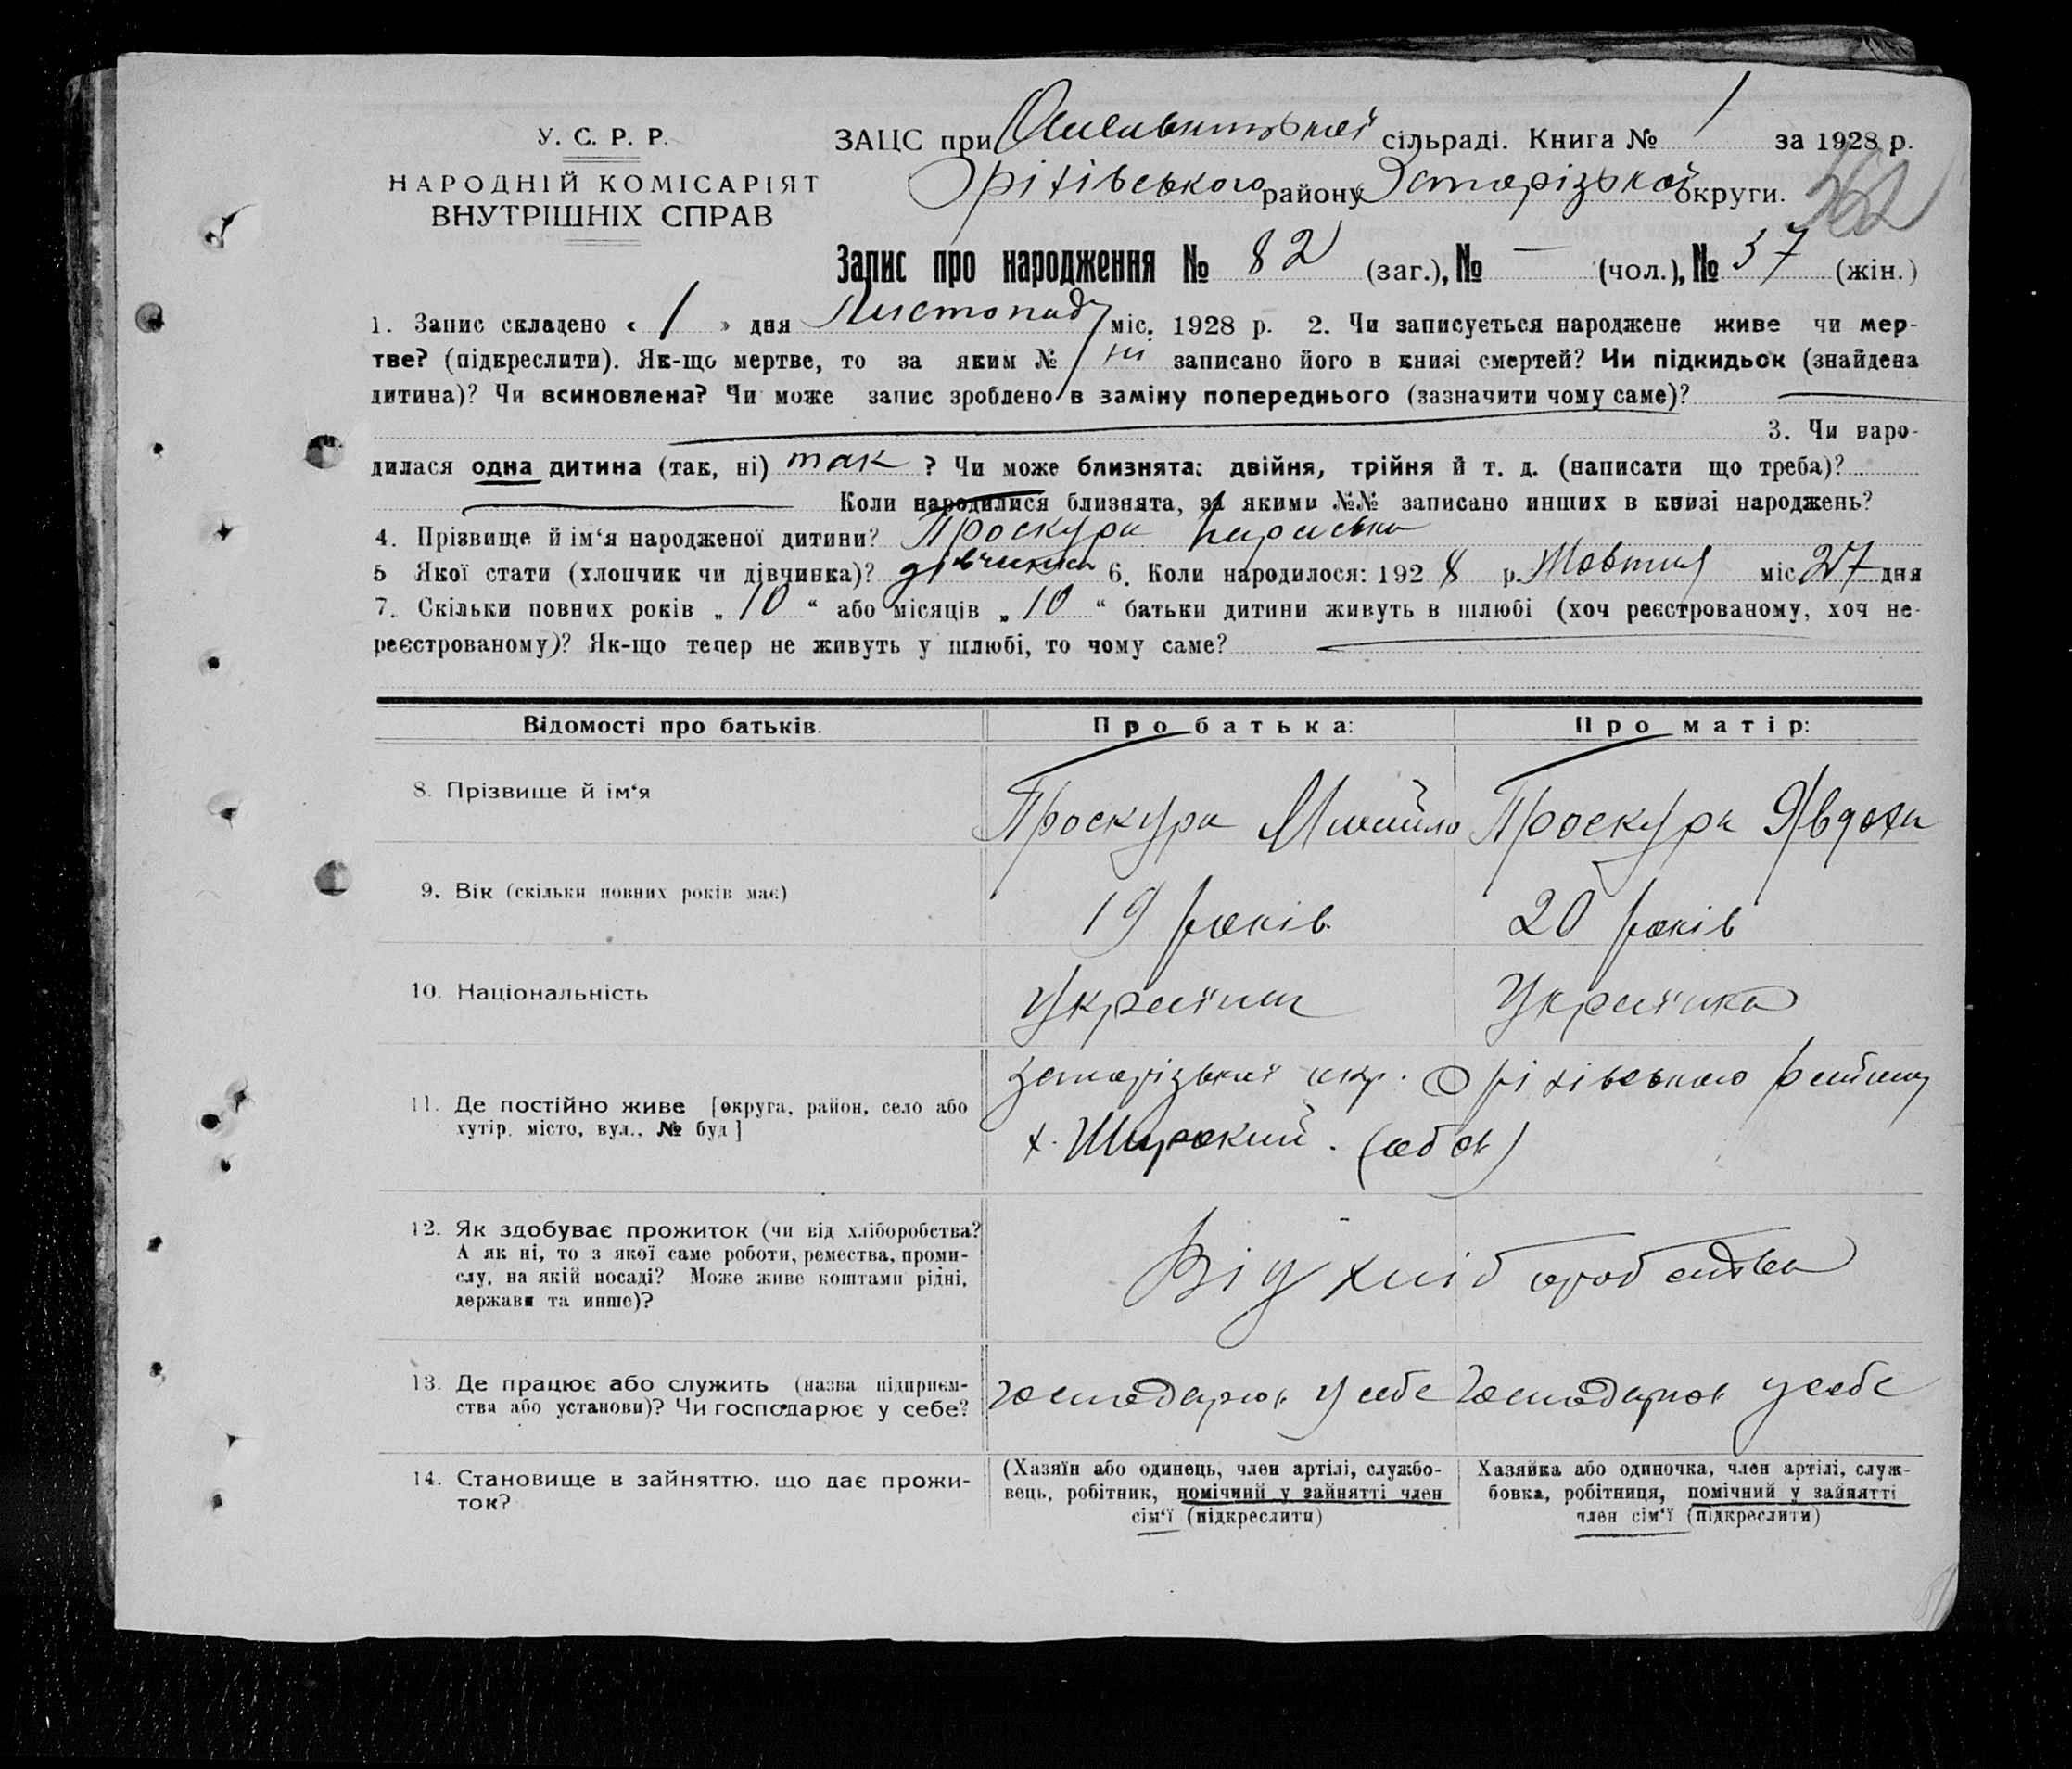 У. С. Р. Р.
НАРОДНІЙ КОМІСАРІЯТ
ВНУТРІШНІХ СПРАВ
ЗАЦС при сільраді. Книга № 1 за 1928 р.
Оріхівського району Запорізької округи.
Запис про народження № 82 (заг.), № — (чол.), № 37 (жін.)
1. Запис складено « 1 » дня Листопада міс. 1928 р. 2. Чи записується народжене живе чи мер-
тве? (підкреслити). Як-що мертве, то за яким № записано його в книзі смертей? Чи підкидьок (знайдена
дитина)? Чи всиновлена? Чи може запис зроблено в заміну попереднього (зазначити чому саме)?
3. Чи наро-
дилася одна дитина (так, ні) так ? Чи може близнята: двійня, трійня й т. д. (написати що треба)?
Коли народилися близнята, за якими №№ записано инших в книзі народжень?
4. Прізвище й ім‘я народженої дитини? Проскура Параська
5 Якої статі (хлопчик чи дівчинка)? дівчинка 6. Коли народилося: 192 8 р. Жовтня міс. 27 дня
7. Скільки повних років „ 10 “ або місяців „ 10 “ батьки дитини живуть в шлюбі (хоч реєстрованому, хоч не-
реєстрованому)? Як-що тепер не живуть у шлюбі, то чому саме?
Відомості про батьків. Про батька: Про матір:
8. Прізвище й ім‘я Проскура Михайло Проскура Явдоха
9. Вік (скільки повних років має) 19 років 20 років
10. Національність Українц Українка
11. Де постійно живе [округа, район, село або
хутір, місто, вул., № буд ]
Запорізької окр. Оріхівського району
х. Широкий. (обоє)
12. Як здобуває прожиток (чи від хліборобства?
А як ні, то з якої саме роботи, ремества, проми-
слу, на якій посаді? Може живе коштами рідні,
держави та инше)?
Від хліборобства
13. Де працює або служить (назва підприєм-
ства або установи)? Чи господарює у себе?
господарює у себе господарює у себе
14. Становище в зайняттю, що дає прожи-
ток?
(Хазяїн або одинець, член артілі, службо-
вець, робітник, помічний у зайнятті член
сім‘ї (підкреслити)
Хазяйка або одиночка, член артілі, служ-
бовка, робітниця, помічний у зайнятті
член сім‘ї (підкреслити)